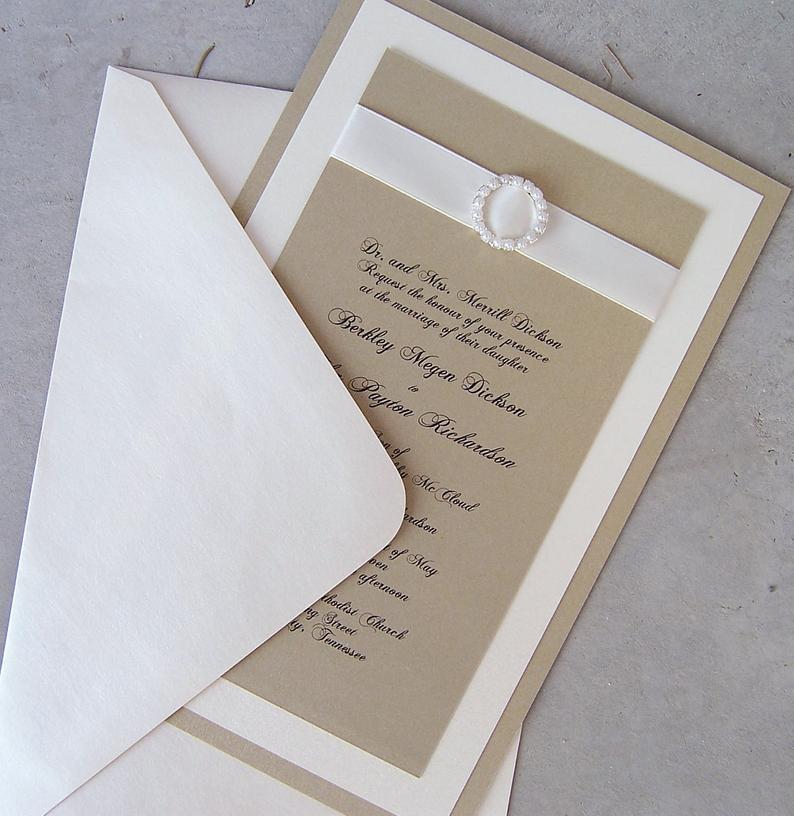 Dr. and Mrs. Merrill Dickson
Request the honour of your presence
at the marriage of their daughter
Berkley Megen Dickson
to
Payton Richardson
of
McCloud
of May
afternoon
Church
Street
Tennessee